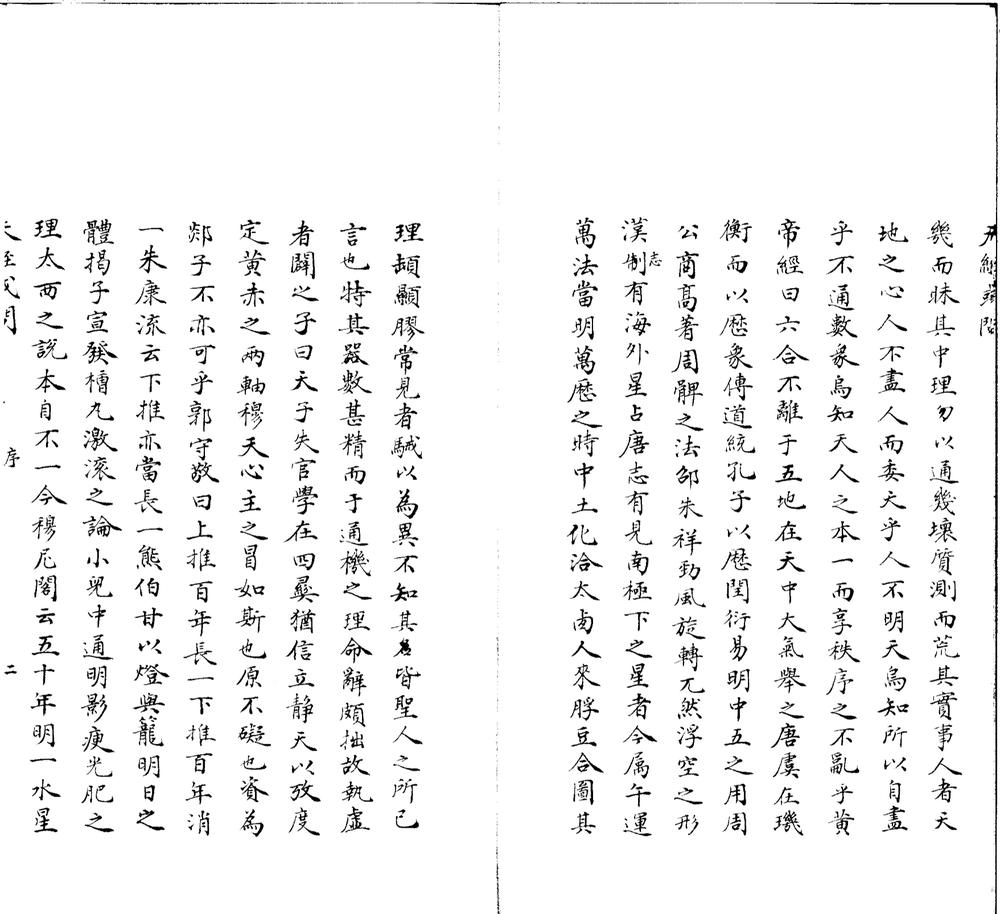 幾而昧其中理勿以通幾壞質測而荒其實事人者天
地之心人不盡人而委天乎人不明天烏知所以自盡
乎不通數象烏知天人之本一而享秩序之不亂乎黄
帝經曰六合不離于五地在天中大氣舉之唐虞在璣
衡而以歷象傳道統孔子以歷閏衍易明中五之用周
公商高著周髀之法邵朱祥勁風旋轉兀然浮空之形
漢志制有海外星占唐志有見南極下之星者今属午運
萬法當明萬歷之時中土化洽太西人來脬豆合圖其
理頡顯膠常見者駴以為異不知其皆聖人之所已
言也特其器數甚精而于通機之理命辭頗拙故執虛
者闢之子曰天子失官學在四彛猶信立静天以攷度
定黄赤之兩軸穆天心主之冒如斯也原不礙也資為
郯子不亦可乎郭守敬曰上推百年長一下推百年消
一朱康流云下推亦當長一熊伯甘以燈與籠明日之
體揭子宣發槽丸激滚之論小兒中通明影瘦光肥之
理太西之說本自不一今穆尼閣云五十年明一水星
天經或問
序
二